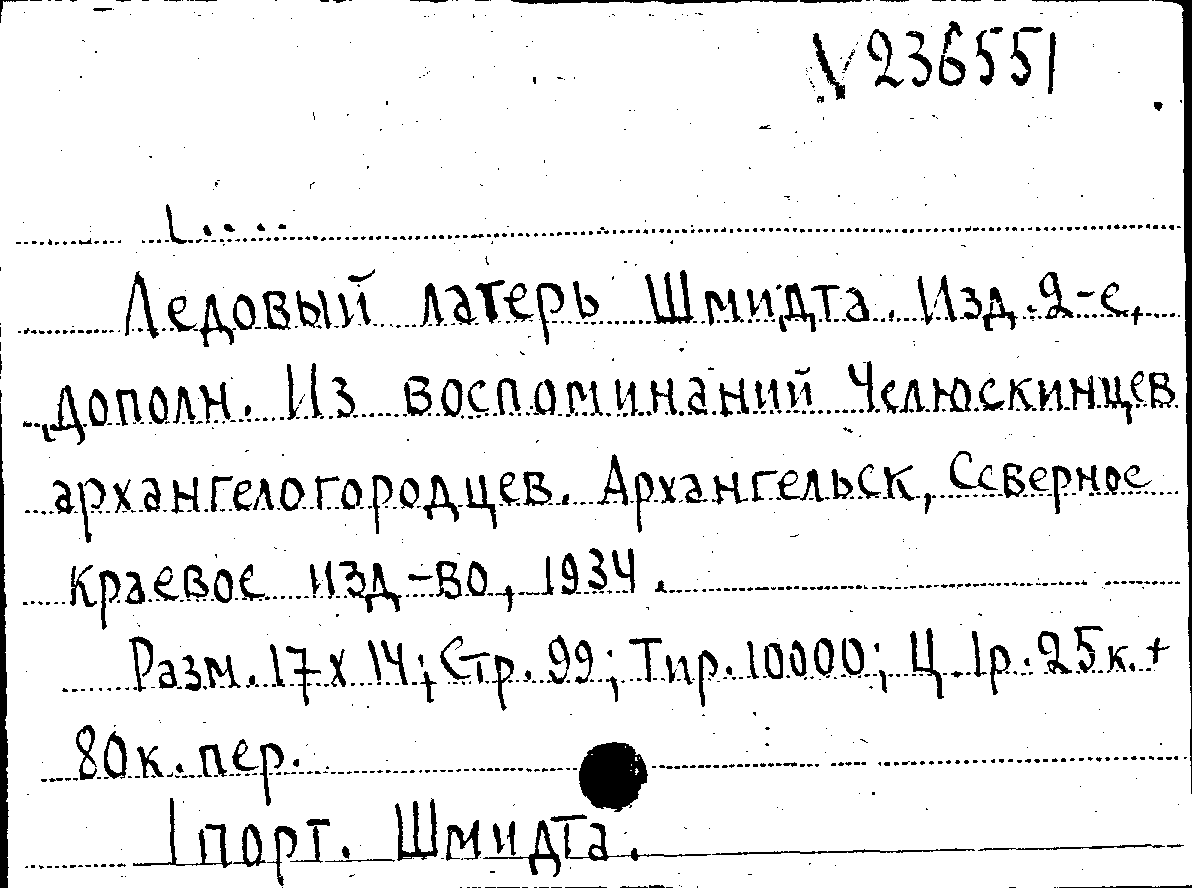 V 236551
Ледовый лагерь Шмидта. Изд. 2-е,
дополн. Из воспоминаний Челюскинцев
архангелогородцев. Архангельск, Северное
краевое изд-во, 1934.
Разм. 17 х 14; Стр. 99; Тир. 10000; Ц. 1р. 25к. +
80к. пер.
1 порт. Шмидта.